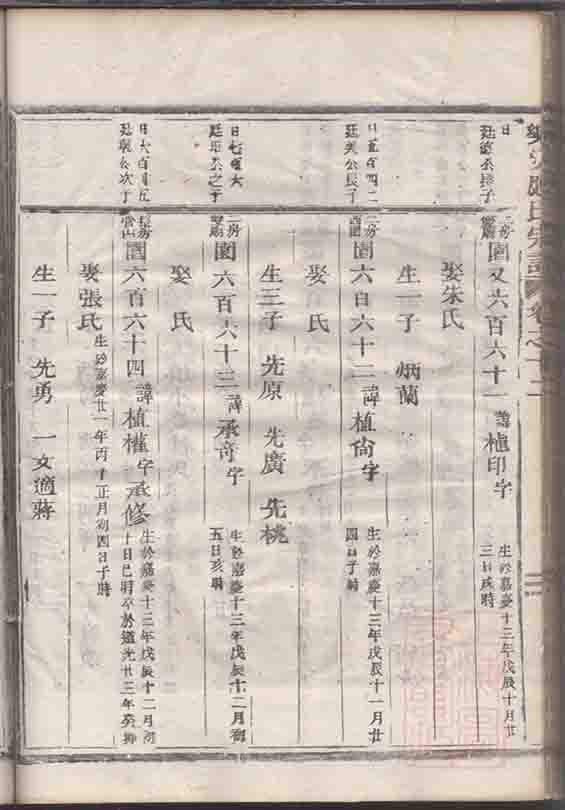 氏宗譜 卷之十二
日
廷 公 子
二房 園又六百六十一 諱植印字 生於嘉慶十三年戊辰十月廿
三日戌時
娶朱氏
生一子 炳蘭
日五百四二
廷 公長子
二房 園六百六十二 諱植尙字 生於嘉慶十三年戊辰十一月廿
四日子時
娶 氏
生三子 先原 先廣 先桃
日七百六
廷 公之子
二房 園六百六十三 諱承奇字 生於嘉慶十三年戊辰十二月初
五日亥時
娶 氏
日六百
廷 公次子
長房 園六百六十四 諱植權字承修 生於嘉慶十三年戊辰十二月初
十日巳時卒於道光廿三年癸卯
娶張氏 生於嘉慶廿一年丙子正月初四日子時
生一子 先勇 一女適蔣